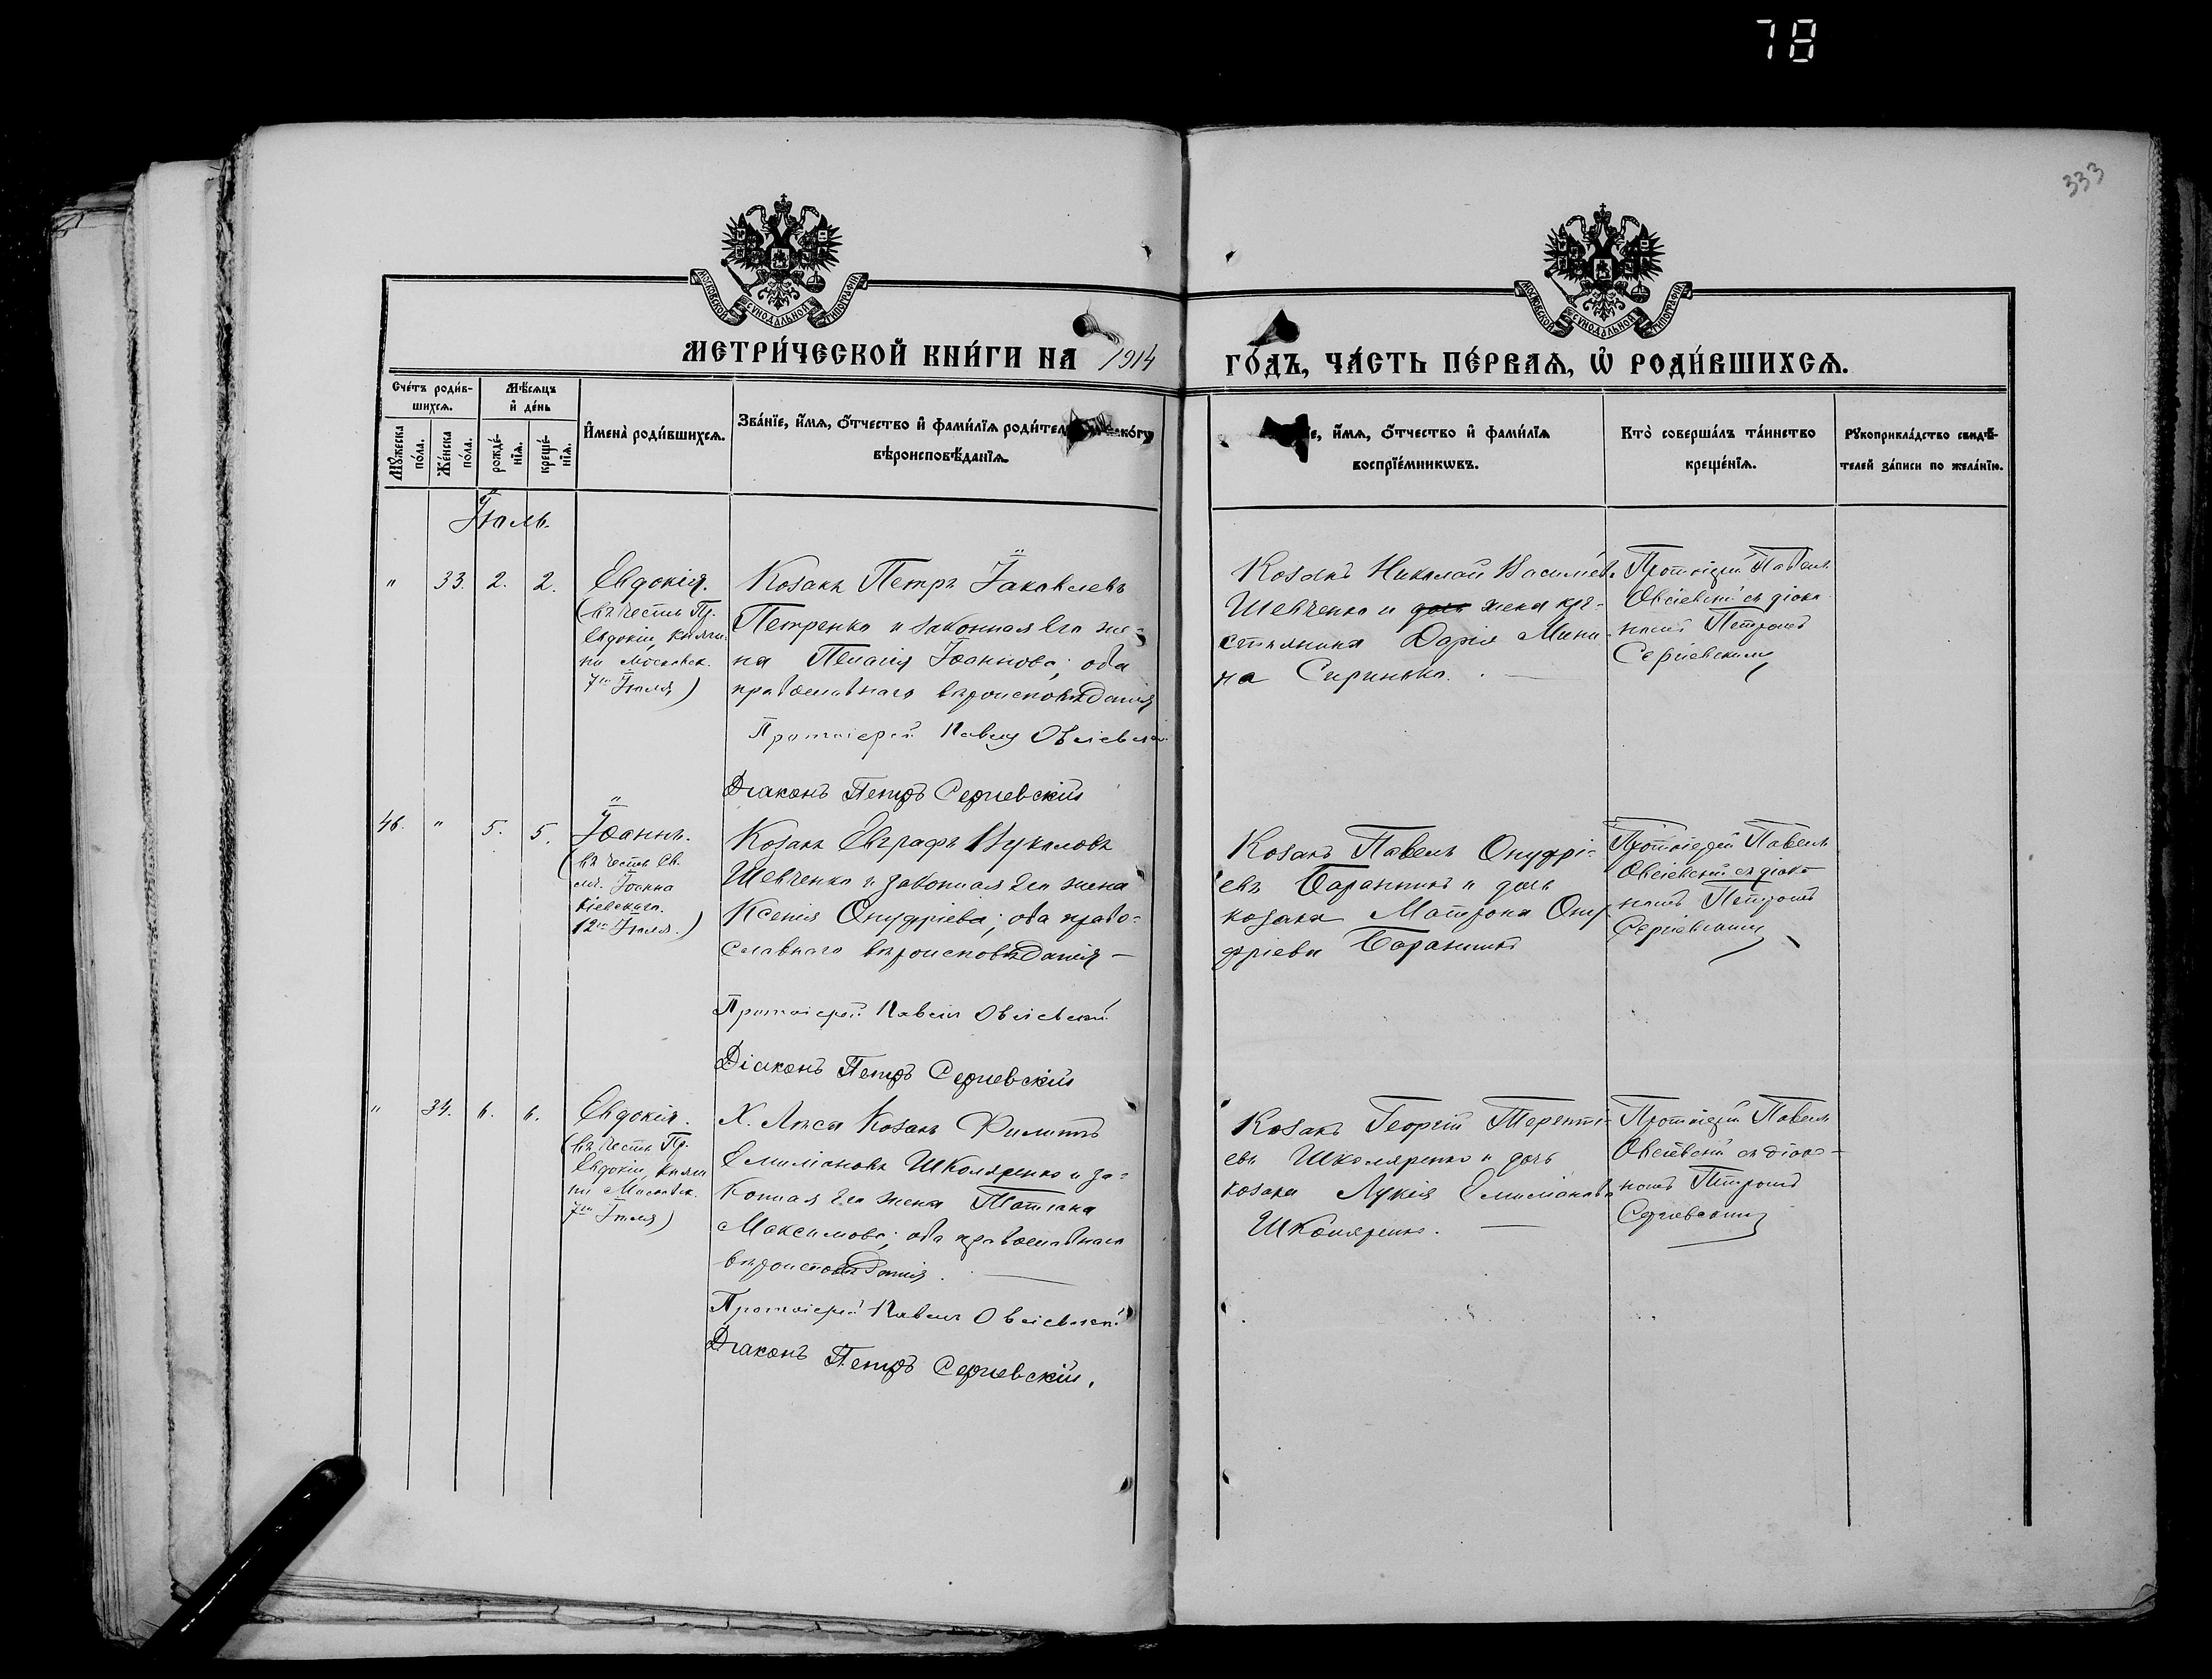 78
333
МОСКОВСКОЙ СѴНОДАЛЬНОЙ ТИПОГРАФІИ
МОСКОВСКОЙ СѴНОДАЛЬНОЙ ТИПОГРАФІИ
МЕТРИ́ЧЕСКОЙ КНИ́ГИ НА 1914
ГО́ДЪ, ЧА́СТЬ ПЕ́РВАѦ, Ѡ҆ РОДИ́ВШИХСѦ.
Сче́тъ роди́в-
шихсѧ.
Мѣ́сѧцъ
и҆ де́нь
Мꙋ́жеска
по́ла.
Же́нска
по́ла.
рожде́-
нїѧ.
креще́-
нїѧ.
И҆мена̀ роди́вшихсѧ.
Зва́нїе, и҆́мѧ, ѻ҆́тчество и҆ фами́лїѧ роди́тел ко́гѡ
вѣроисповѣ́данїѧ.
е, и҆́мѧ, ѻ҆́тчество и҆ фами́лїѧ
воспрїе́мникѡвъ.
Кто̀ соверша́лъ та́инство
креще́нїѧ.
Рꙋкоприкла́дство свидѣ́-
телей за́писи по жела́нїю.
Іюль.
" 33. 2. 2.
Евдокія.
(въ честь Пр.
Евдокіи, княги-
ни Московск.
7го Іюля)
Козакъ Петръ Іаковлевъ
Петренко и законная его же-
на Пелагія Іоаннова; оба
православнаго вѣроисповѣданія
Протоіерей Павелъ Овсіевскій
Діаконъ Петръ Сергіевскій
Козакъ Николай Васильев.
Шевченко и дочь жена кре-
стьянина Дарія Мини-
на Сиринько.
Протоіерей Павелъ
Овсіевскій съ діако-
номъ Петромъ
Сергіевскимъ
46. " 5. 5.
Іоаннъ.
(въ честь Св.
мч. Іоанна
Кіевскаго.
12го Іюля.)
Козакъ Евграфъ
Шевченко и законная его жена
Ксенія Онуфріева; оба право-
славнаго вѣроисповѣданія —
Протоіерей Павелъ Овсіевскій
Діаконъ Петръ Сергіевскій
Козакъ Павелъ Онуфрі-
евъ Баранникъ и дочь
козака Матрона Ону-
фріева Баранникъ
Протоіерей Павелъ
Овсіевскій съ діако-
номъ Петромъ
Сергіевскимъ
" 34. 6. 6.
Евдокія.
(въ честь Пр.
Евдокіи, княги-
ни Московск.
7го Іюля)
Х. Лиса Козакъ Филиппъ
Емиліановъ Школяренко и за-
конная его жена Татіана
Максимова; оба православнаго
вѣроисповѣданія.
Протоіерей Павелъ Овсіевскій
Діаконъ Петръ Сергіевскій.
Козакъ Георгій Теренті-
евъ Школяренко и дочь
козака Лукія Емиліанова
Школяренко.
Протоіерей Павелъ
Овсіевскій съ діако-
номъ Петромъ
Сергіевскимъ